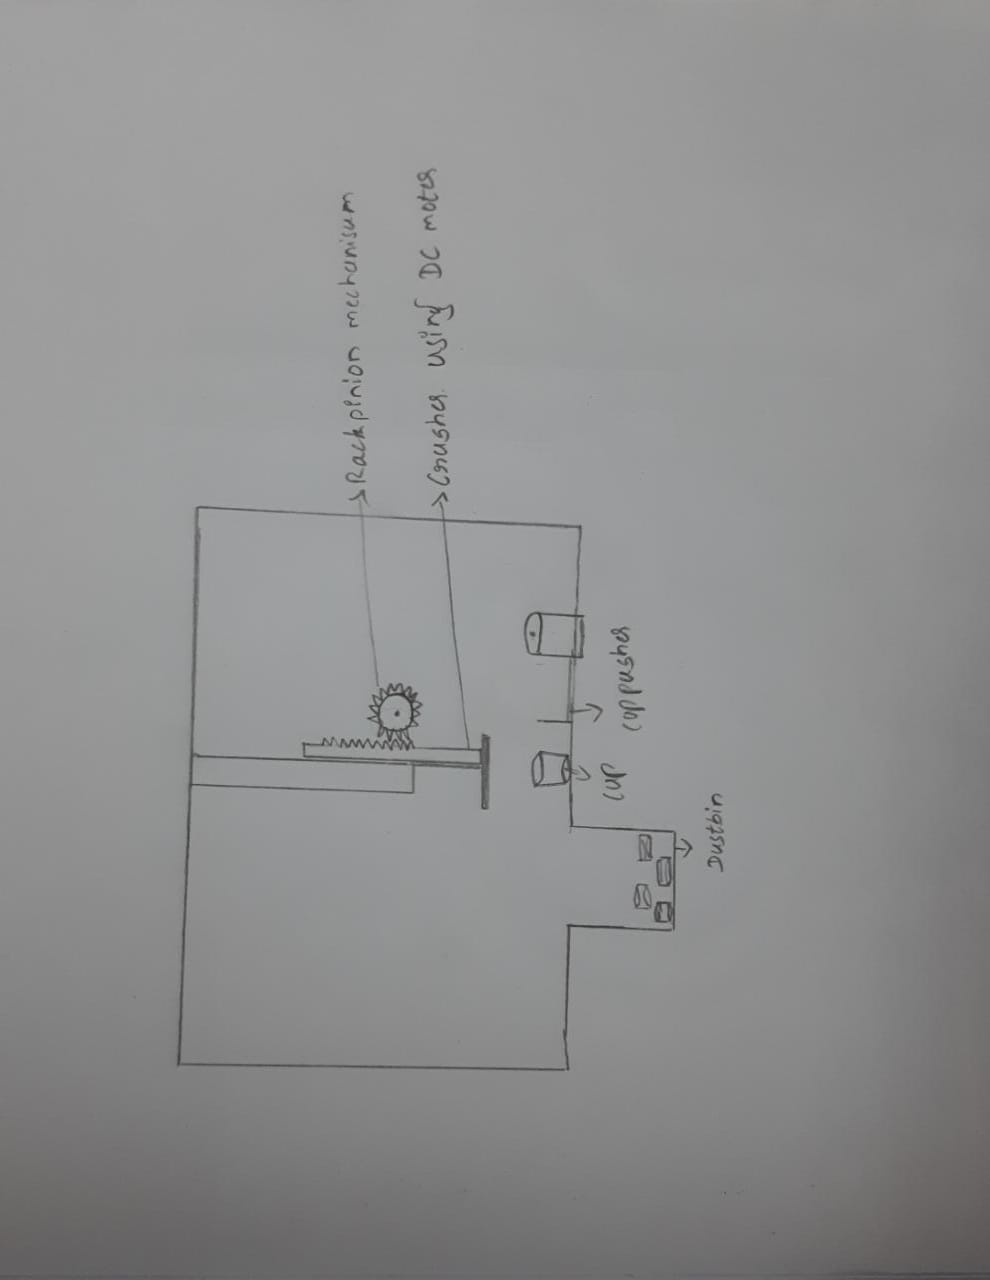 Rack pinion mechanisum
Crusher using DC moter
cup
cup pusher
Dustbin